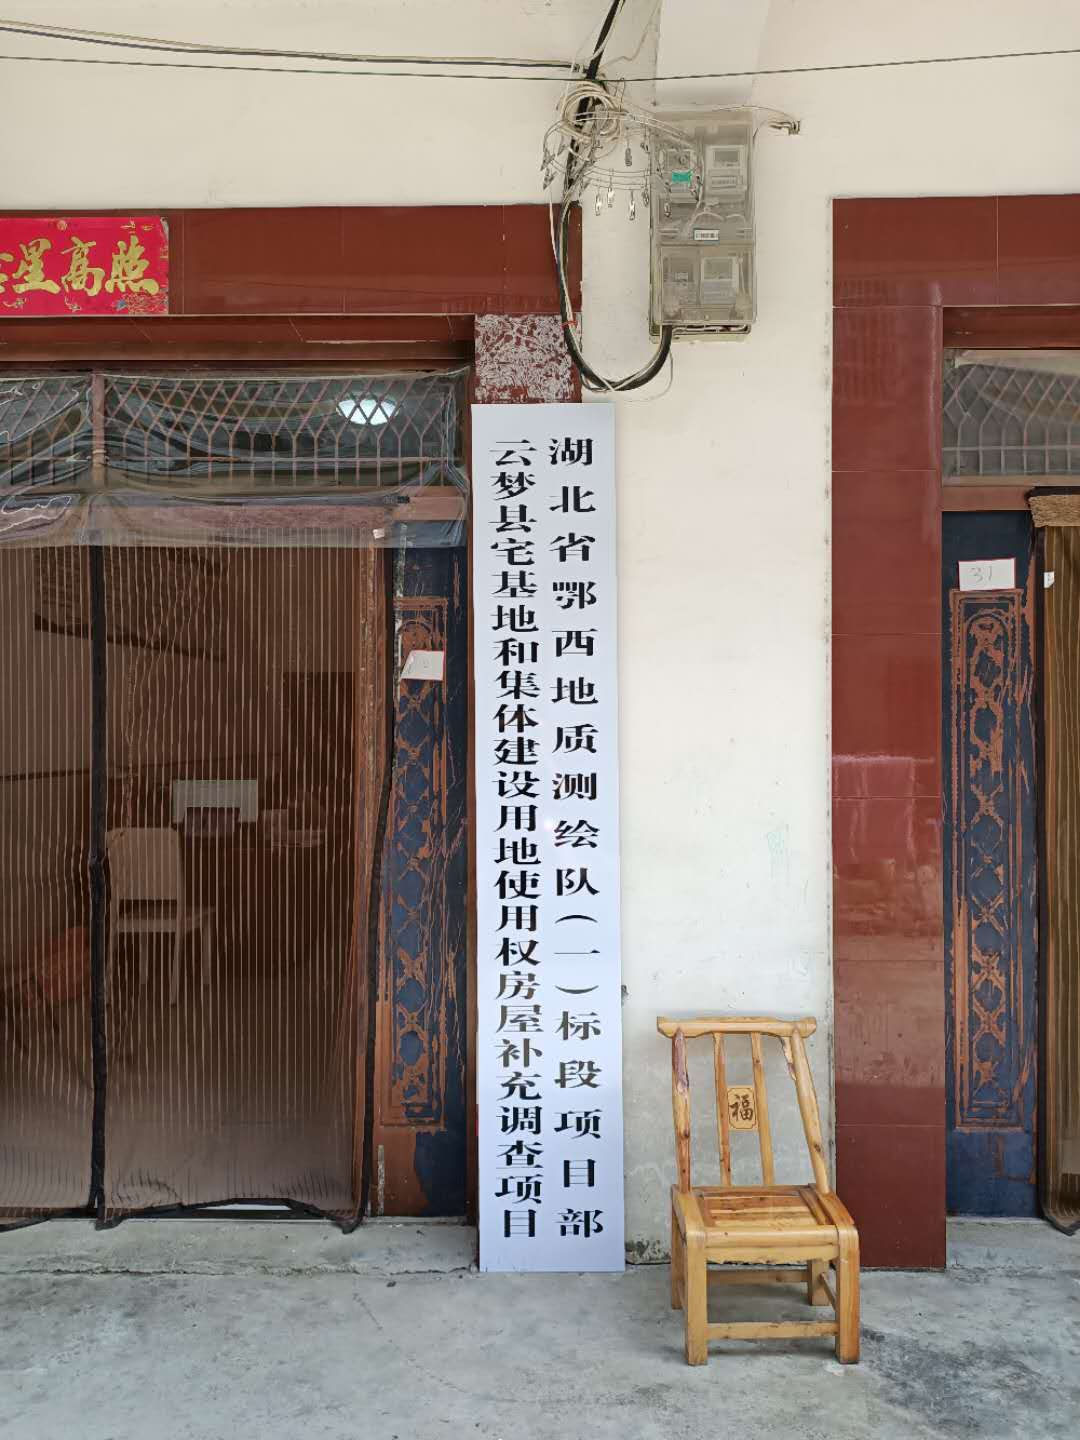 星高照
湖北省鄂西地质测绘队(一)标段项目部
云梦县宅基地和集体建设用地使用权房屋补充调查项目
31
福